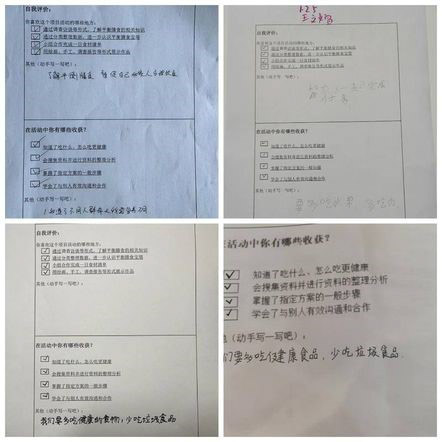 自我评价:
你喜欢这个项目活动的哪些地方:
通过调查访谈等形式,了解平衡膳食的相关知识
通过分类整理数据,进一步认识平衡膳食宝塔
小组合作完成一日食材清单
用绘画、手工、调查报告等形式展示作品
其他(动手写一写吧):
在活动中你有哪些收获?
知道了吃什么、怎么吃更健康
会搜集资料并进行资料的整理分析
掌握了指定方案的一般步骤
学会了与别人有效沟通和合作
其他(动手写一写吧):
自我评价:
你喜欢这个项目活动的哪些地方:
通过调查访谈等形式,了解平衡膳食的相关知识
通过分类整理数据,进一步认识平衡膳食宝塔
小组合作完成一日食材清单
用绘画、手工、调查报告等形式展示作品
其他(动手写一写吧):
在活动中你有哪些收获?
知道了吃什么、怎么吃更健康
会搜集资料并进行资料的整理分析
掌握了指定方案的一般步骤
学会了与别人有效沟通和合作
其他(动手写一写吧):
要多吃水果
自我评价:
你喜欢这个项目活动的哪些地方:
通过调查访谈等形式,了解平衡膳食的相关知识
通过分类整理数据,进一步认识平衡膳食宝塔
小组合作完成一日食材清单
用绘画、手工、调查报告等形式展示作品
其他(动手写一写吧):
在活动中你有哪些收获?
知道了吃什么、怎么吃更健康
会搜集资料并进行资料的整理分析
掌握了指定方案的一般步骤
学会了与别人有效沟通和合作
其他(动手写一写吧):
我们要多吃健康的食物,少吃垃圾食品
在活动中你有哪些收获?
知道了吃什么、怎么吃更健康
会搜集资料并进行资料的整理分析
掌握了指定方案的一般步骤
学会了与别人有效沟通和合作
(动手写一写吧):
们要多吃健康食品,少吃垃圾食品.